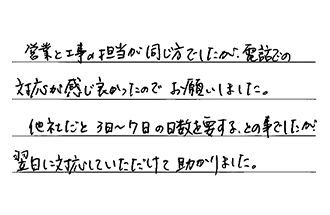 営業と工事の担当が同じ方でしたが、電話での
対応が感じ良かったのでお願いしました。
他社だと3日〜7日の日数を要する、との事でしたが
翌日に対応していただけて助かりました。